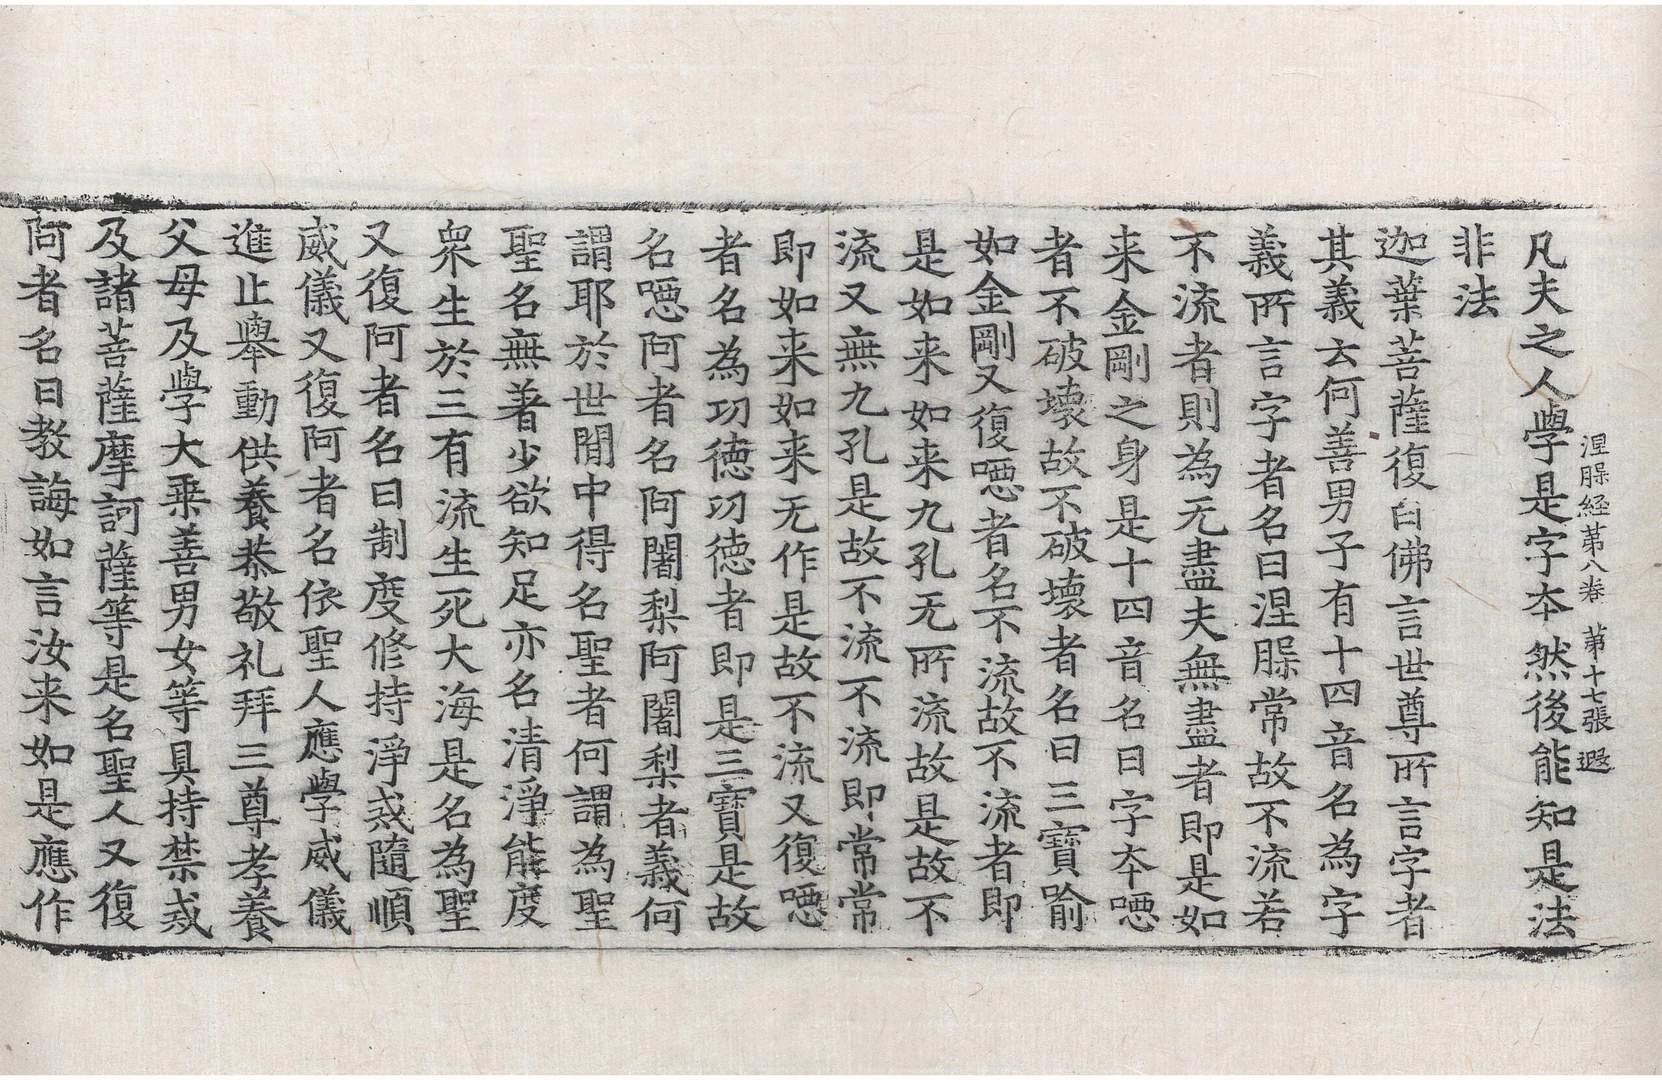 涅槃経第八卷　第十七張　遐
凡夫之人學是字夲然後能知是法
非法
迦葉菩薩復白佛言世尊所言字者
其義云何善男子有十四音名為字
義所言字者名曰涅槃常故不流若
不流者則為无盡夫無盡者即是如
来金剛之身是十四音名曰字夲噁
者不破壞故不破壞者名曰三寶喻
如金剛又復噁者名不流故不流者即
是如来如来九孔无所流故是故不
流又無九孔是故不流不流即常常
即如来如来无作是故不流又復噁
者名為功德功德者即是三寶是故
名噁阿者名阿闍梨阿闍梨者義何
謂耶於世間中得名聖者何謂為聖
聖名無著少欲知足亦名清淨能度
衆生於三有流生死大海是名為聖
又復阿者名曰制度修持淨戒隨順
威儀又復阿者名依聖人應學威儀
進止舉動供養恭敬礼拜三尊孝養
父母及學大乗善男女等具持禁戒
及諸菩薩摩訶薩等是名聖人又復
阿者名曰教誨如言汝来如是應作